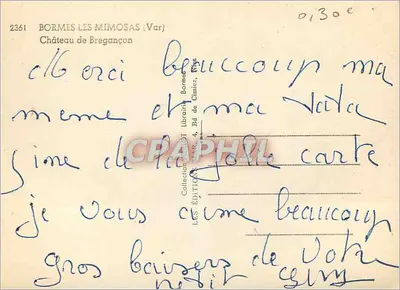 2361 BORMES-LES-MIMOSAS (Var)
Château de Brégançon
0,30€
Merci beaucoup ma
meme et ma Tata
Gine de la jolie carte
je vous aime beaucoup
gros baisers de votre
petit
CPAPHIL
Collection Librairie Bormes
LES ÉDITIONS 4, Bd de Cimiez,